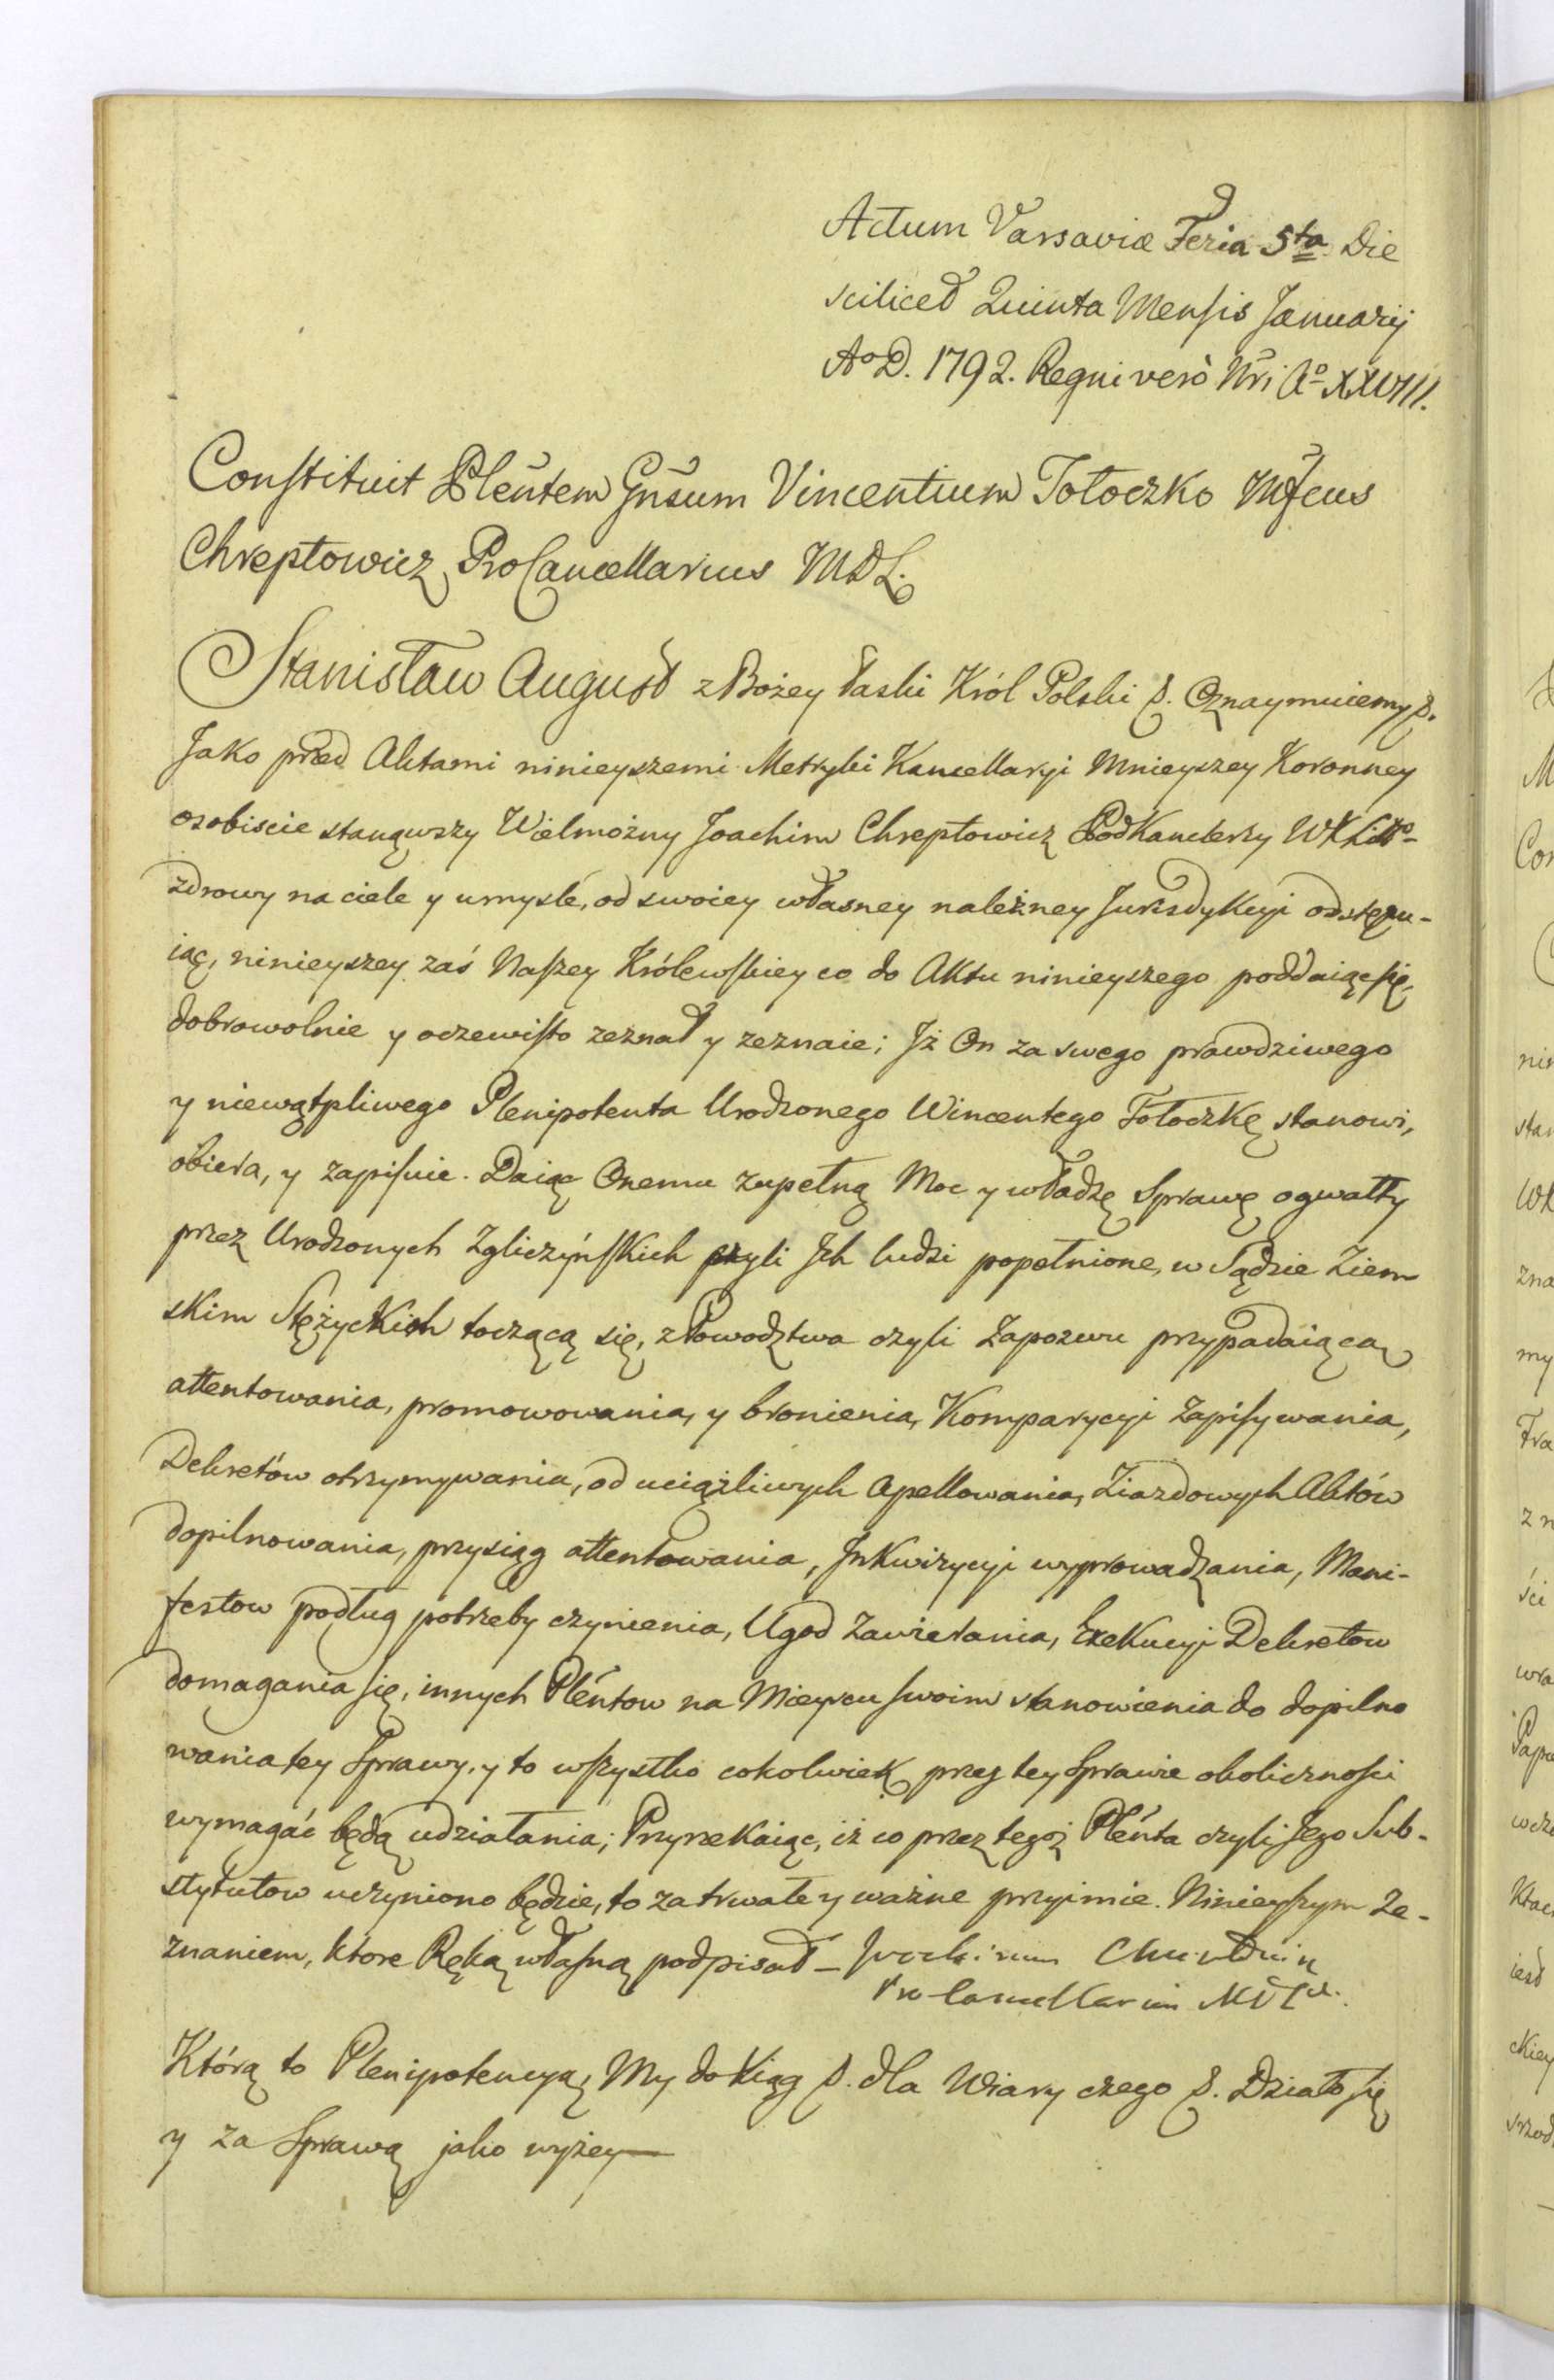 Actum Varsaviæ Feria 5ta Die
scilicet Quinta Mensis Januarij
Ao D. 1792. Regni verò Nri Ao XXVIII.
Constituit Plentem Gnsum Vincentium Tołoczko Mfcus
Chreptowicz ProCancellarius MDL.
Stanisław August z Bożey łaski Król Polski &. Oznaymuiemy &.
Jako przed Aktami ninieyszemi Metryki Kancellaryi Mnieyszey Koronney
osobiscie stanąwszy Wielmożny Joachim Chreptowicz PodKanclerzy WXLitto
zdrowy na ciele y umysle, od swoiey własney należney Jurisdykcyi odstępu-
iąc, ninieyszey zaś Naszey Królewskiey co do Aktu ninieyszego poddaiąc się,
dobrowolnie y oczewisto zeznał y zeznaie; Jż On za swego prawdziwego
y niewątpliwego Plenipotenta Urodzonego Wincentego Tołoczkę stanowi,
obiera, y zapisuie. Daiąc Onemu zupełną Moc y władzę Sprawę o gwałty
przez Urodzonych Zgliczyńskich czyli Jch ludzi popełnione, w Sądzie Ziem
skim Stężyckich toczącą się, z Powodztwa czyli Zapozwu przypadaiącą
attentowania, promowowania, y bronienia, Komparycyi zapisywania,
Dekretów otrzymywania, od uciążliwych apellowania, Ziazdowych Aktów
dopilnowania, przysiąg attentowania, Jnkwizycyi wyprowadzania, Mani-
festow podług potrzeby czynienia, Ugod zawierania, Exekucyi Dekretow
domagania się, innych Pléntow na Mieyscu swoim stanowienia do dopilno
wania tey Sprawy, y to wszystko cokolwiek przez tey Sprawie okoliczności
wymagać będą udziałania; Przyrzekaiąc, iż co przez tegoż Plénta czyli Jego Sub-
stytutow uczyniono będzie, to za trwałe y ważne przyimie. Ninieyszym Ze-
znaniem, ktore Ręką własną podpisał –
ProCancellarius MDL
Którą to Plenipotencyą, My do Xiąg &. dla Wiary czego &. Działo się
y za Sprawą jako wyżey